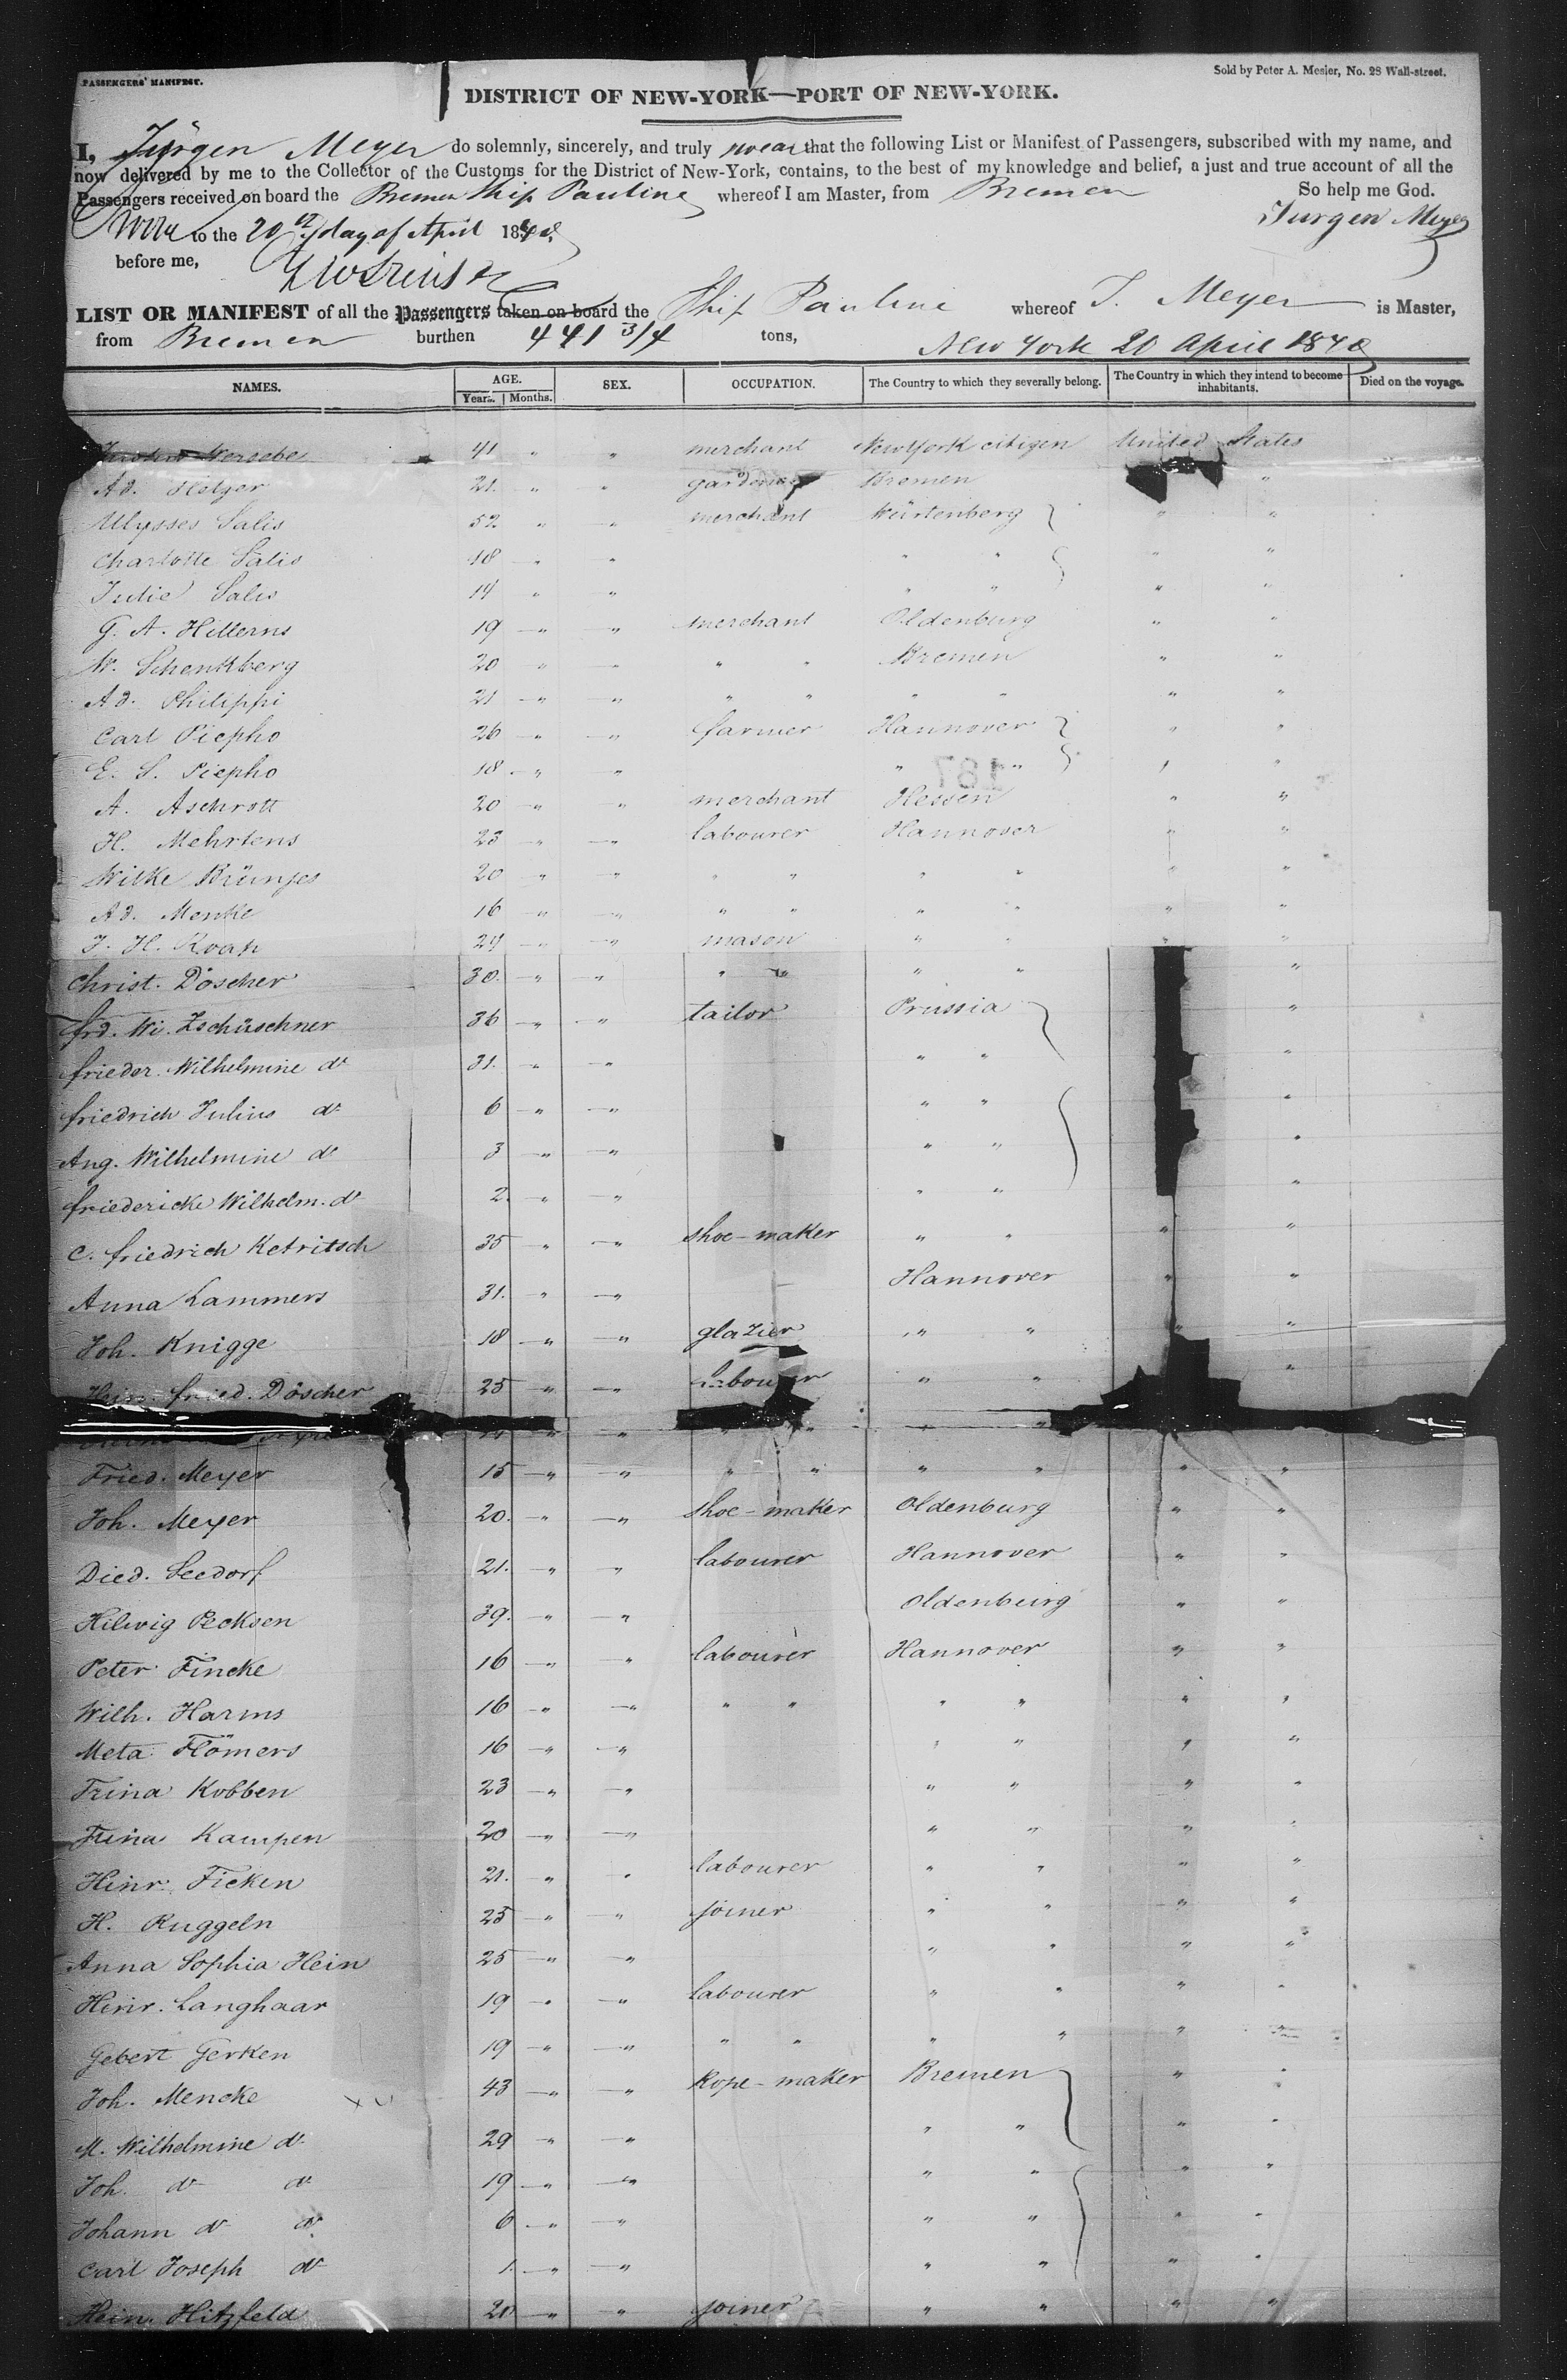 PASSENGERS' MANIFEST.
Sold by Peter A. Mesier, No. 28 Wall-street.
DISTRICT OF NEW-YORK—PORT OF NEW-YORK.
I, Jürgen Meyer do solemnly, sincerely, and truly swear that the following List or Manifest of Passengers, subscribed with my name, and
now delivered by me to the Collector of the Customs for the District of New-York, contains, to the best of my knowledge and belief, a just and true account of all the
Passengers received on board the Bremen Ship Pauline whereof I am Master, from Bremen So help me God.
Swore to the 20 day of April 1840 Jurgen Meyer
before me,
LIST OR MANIFEST of all the Passengers taken on board the Ship Pauline whereof J. Meyer is Master,
from Bremen burthen 441 3/4 tons, New York 20 April 1840
NAMES. AGE. Years. Months. SEX. OCCUPATION. The Country to which they severally belong. The Country in which they intend to become inhabitants. Died on the voyage.
41 " " merchant New York citizen United States
Ad. Helzer 21. " " gardener Bremen "
Ulysses Salis 52. " " merchant Würtenberg " "
Charlotte Salis 18 " " " " " "
Julie Salis 14 " " " " " "
G. A. Hillerns 19 " " merchant Oldenburg " "
W. Schenkberg 20 " " " " Bremen " "
Ad. Philippi 21 " " " " " " " "
Carl Piepho 26 " " farmer Hannover " "
E. S. Piepho 18 " " " " " "
187
A. Aschrott 20 " " merchant Hessen " "
H. Mehrtens 23 " " labourer Hannover " "
Wilke Brünjes 20 " " " " " " " "
Ad. Menke 16 " " " " " " " "
J. H. Kvap 24 " " mason " " " "
Christ. Döscher 30. " " " " " " "
Frd. Wi. Zschüschner 36 " " tailor Prussia "
Frieder. Wilhelmine do 31. " " " " "
Friedrich Julius do 6 " " " " "
Aug. Wilhelmine do 3 " " " " "
Friedericke Wilhelm. do 2. " " " " "
C. Friedrich Ketritsch 35 " " shoe-maker " " " "
Anna Lammers 31. " " Hannover " "
Joh. Knigge 18 " " glazier " " " "
Hein. Fried. Döscher 25 " " Labourer " " "
" " " " " "
Fried. Meyer 15 " " " " " " " "
Joh. Meyer 20. " " shoe-maker Oldenburg " "
Died. Seedorf 21. " " labourer Hannover " "
Hilwig Pecksen 39. " " Oldenburg " "
Peter Fincke 16 " " labourer Hannover " "
Wilh. Harms 16 " " " " " " " "
Meta Flömers 16 " " " " " "
Trina Kobben 23 " " " " " "
Trina Kampen 20 " " " " " "
Hinr. Ficken 21. " " labourer " " " "
H. Ruggeln 25 " " joiner " " " "
Anna Sophia Hein 25 " " " " " "
Hinr. Langhaar 19 " " labourer " " " "
Gebert Gerken 19 " " " " " " " "
Joh. Mencke 43 " " Rope-maker Bremen " "
M. Wilhelmine do 29 " " " " " "
Joh. do do 19 " " " " " "
Johann do do 6 " " " " " "
Carl Joseph do 1. " " " " " "
Hein. Hitzfeld 20 " " joiner " " " "